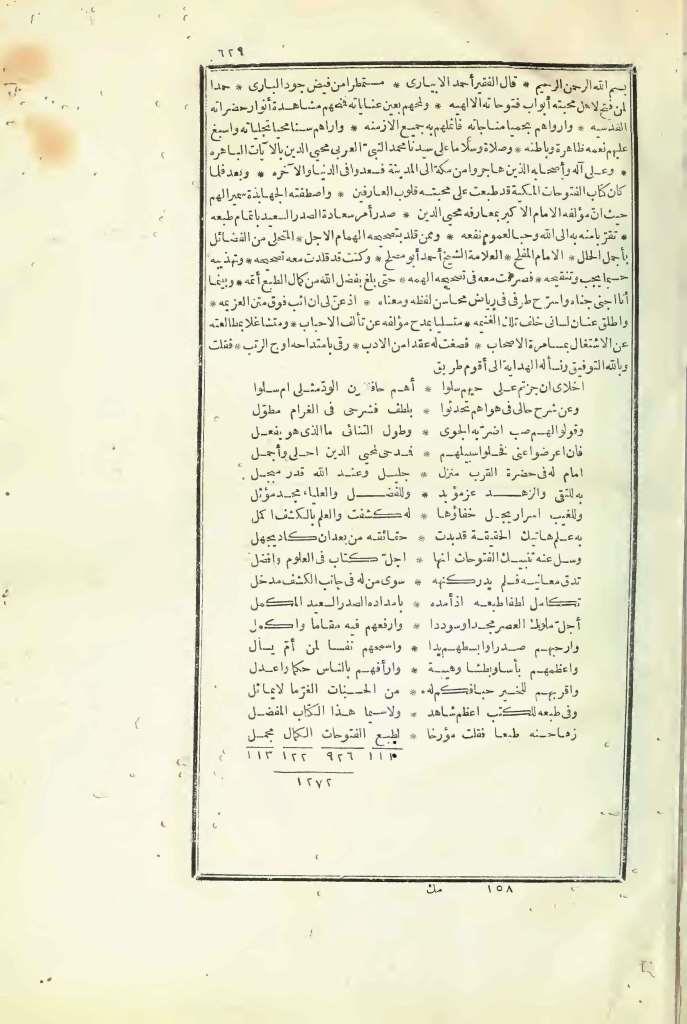 ٦٢٩
بسم الله الرحمن الرحيم * قال الفقير أحمد الابيارى * مستمطرا من فيض جود البارى * حمدا
لمن فتح لاهل محبته أبواب فتوحاته الالهيه * ومنحهم بعين عناياته فخصهم بمشاهدة أنوار حضراته
القدسيه * وارواهم بحميا مناجاته فأثملهم به جميع الازمنه * واراهم سنا محيا تجلياته واسبغ
عليهم نعمه ظاهرة وباطنه * وصلاة وسلاما على سيدنا محمد النبى العربى محيى الدين بالآيات الباهره
* وعلى آله وأصحابه الذين هاجروا من مكة الى المدينة فسعدوا فى الدنيا والآخره * وبعد فلما
كان كتاب الفتوحات المكية قد طبعت على محبته قلوب العارفين * واصطفته الجهابذة سميرا لهم
حيث انّ مؤلفه الامام الاكبر بمعارفه محيى الدين * صدر أمر سعادة الصدر السعيد باتمام طبعه
* تقرّبا منه به الى الله وحبا لعموم نفعه * وممن قلد بتصحيحه الهمام الاجل * المتحلى من الفضائل
بأجمل الحلل * الامام المفلح * العلامة الشيخ أحمد أبو مصلح * وكنت قد قلدت معه تصحيحه * وتهذيبه
حسبما يجب وتنقيحه * فصرفت معه فى تصحيحه الهمه * حتى بلغ بفضل الله من كمال الطبع أتمه * وبينما
أنا اجنى جناه واسرّح طرفى فى رياض محاسن لفظه ومعناه * اذ عنّ لى ان اثب فوق متن العزيمه *
واطلق عنان لسانى خلف تلك الغنيمه * متسليا بمدح مؤلفه عن تآلف الاحباب * ومتشاغلا بمطالعته
عن الاشتغال بمسامرة الاصحاب * فصغت له عقدا من الادب * رقى بامتداحه اوج الرتب * فقلت
وبالله التوفيق ونسأله الهداية الى أقوم طريق
اخلاى ان جزتم على حيهم سلوا * أهم حافظين الودّ مثلى ام سلوا
وعن شرح حالى فى هواهم تحدثوا * بلطف فشرحى فى الغرام مطوّل
وقولوا لهم صب اضرّ به الجوى * وطول التنائى ما الذى هو يفعل
فان اعرضوا عنى فخلوا سبيلهم * فمدحى لمحيى الدين احلى وأجمل
امام له فى حضرة القرب منزل * جليل وعند الله قدر مبجل
به للتقى والزهد عز مؤيد * وللفضل والعلياء مجد مؤثل
وللغيب اسرار يجل خفاؤها * له كشفت والعلم بالكشف اكمل
به علم هاتيك الحقيقة قد بدت * حقائقه من بعد ان كاد يجهل
وسل عنه تنبيك الفتوحات انها * اجلّ كتاب فى العلوم وافضل
تدق معانيه فلم يدر كنهه * سوى من له فى جانب الكشف مدخل
تكامل لطفا طبعه اذ أمده * بامداده الصدر السعيد المكمل
أجلّ ملوك العصر مجدا وسوددا * وارفعهم فيه مقاما واكمل
وارحبهم صدرا وابسطهم يدا * واسمحهم نفسا لمن أمّ يسأل
واعظمهم بأسا وبطشا وهيبة * وارأفهم بالناس حكما واعدل
واقربهم للخير حبا فكم له * من الحسنات الغرّ ما لا يماثل
وفى طبعه للكتب اعظم شاهد * ولا سيما هذا الكتاب المفضل
زها حسنه طبعا فقلت مؤرخا * لطبع الفتوحات الكمال مجمل
١١٣ ١٢٢ ٩٢٦ ١١١
١٢٧٢
١٥٨ مك